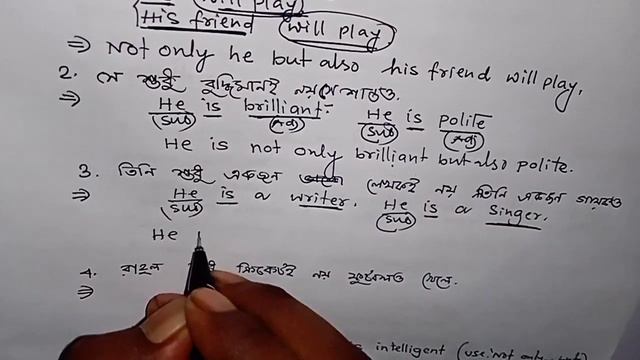 will play
His friend will play
⇒ Not only he but also his friend will play.
2. সে শুধু বুদ্ধিমানই নয় সে শান্তও.
⇒ He is brilliant. He is polite
(Sub) (Adj) (Sub) (Adj)
He is not only brilliant but also polite.
3. তিনি শুধু একজন লেখকই নয় তিনি একজন গায়কও
⇒ He is a writer. He is a singer.
(Sub) (Sub)
He
4. রাহুল ক্রিকেটই নয় ফুটবলও খেলে.
⇒
is intelligent (use: Not only